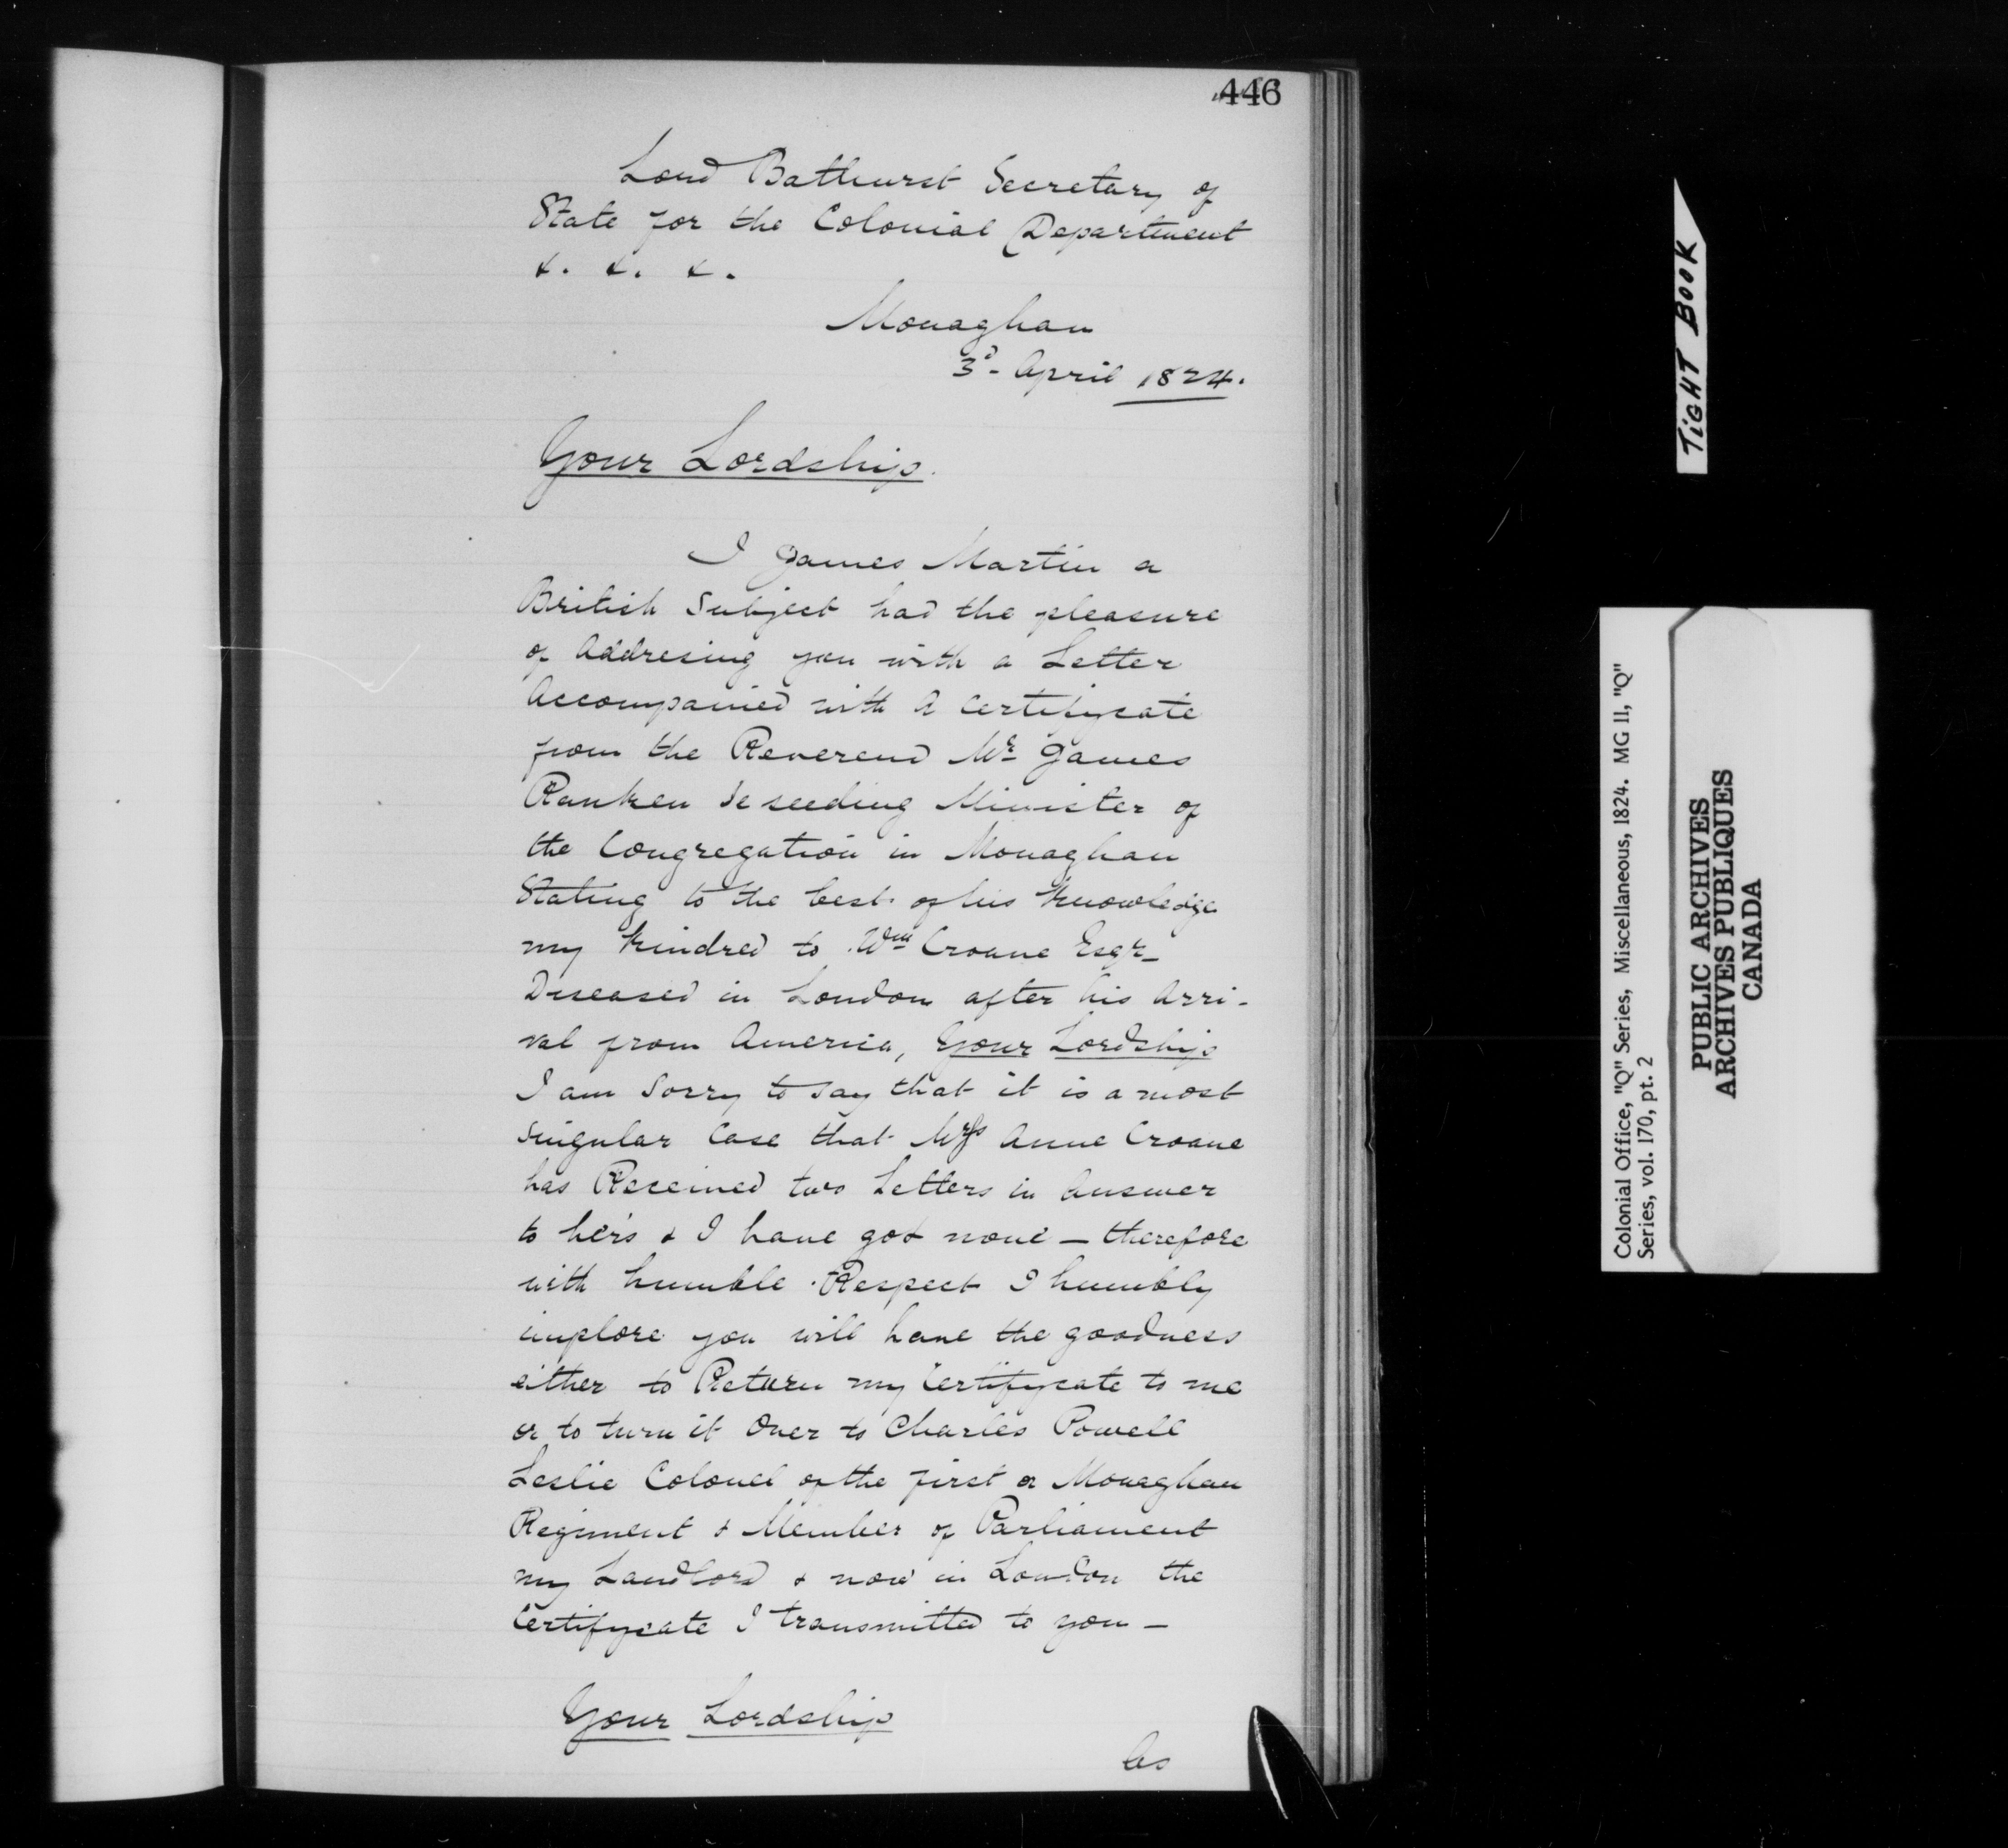 446
Lord Bathurst Secretary of
State for the Colonial Department
&. &. &.
Monaghan
3d- April 1824.
Your Lordship.
I James Martin a
British Subject had the pleasure
of Addresing you with a Letter
Accompanied with A Certifycate
from the Reverend Mr James
Ranken Seseeding Minister of
the Congregation in Monaghan
Stating to the best of his Knowledge
my Kindred to Wm Croane Esqr-
Diseased in London after his Arri-
val from America, Your Lordship
I am Sorry to say that it is a most
Singular Case that Mrs Anne Croane
has Received two Letters in Answer
to her's & I have got none - therefore
with humble Respect I humbly
implore you will have the goodness
either to Return my Certifycate to me
or to turn it Over to Charles Powell
Leslie Colonel of the first or Monaghan
Regiment & Member of Parliament
my Landlord & now in London the
Certifycate I transmitted to you -
Your Lordship
As
TIGHT BOOK
Colonial Office, "Q" Series, Miscellaneous, 1824. MG 11, "Q"
Series, vol. 170, pt. 2
PUBLIC ARCHIVES
ARCHIVES PUBLIQUES
CANADA